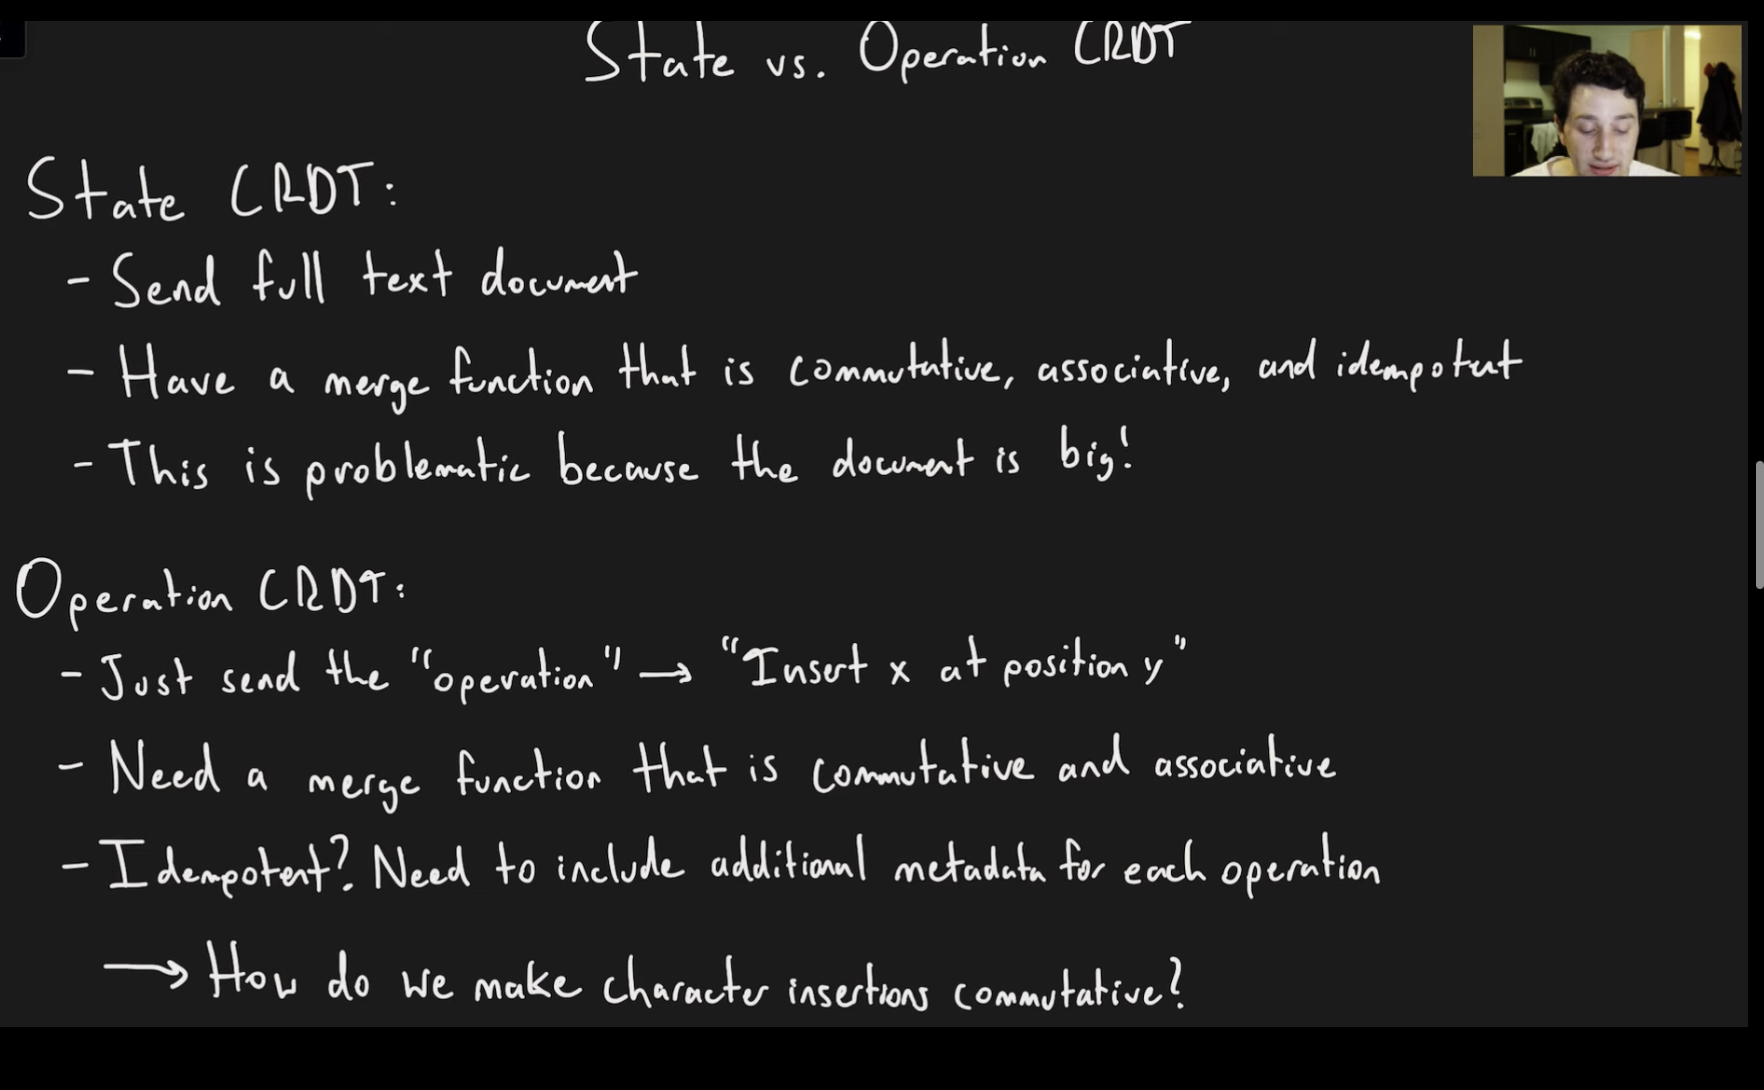 State vs. Operation CRDT
State CRDT:
- Send full text document
- Have a merge function that is commutative, associative, and idempotent
- This is problematic because the document is big!
Operation CRDT:
- Just send the "operation" → "Insert x at position y"
- Need a merge function that is commutative and associative
- Idempotent? Need to include additional metadata for each operation
→ How do we make character insertions commutative?